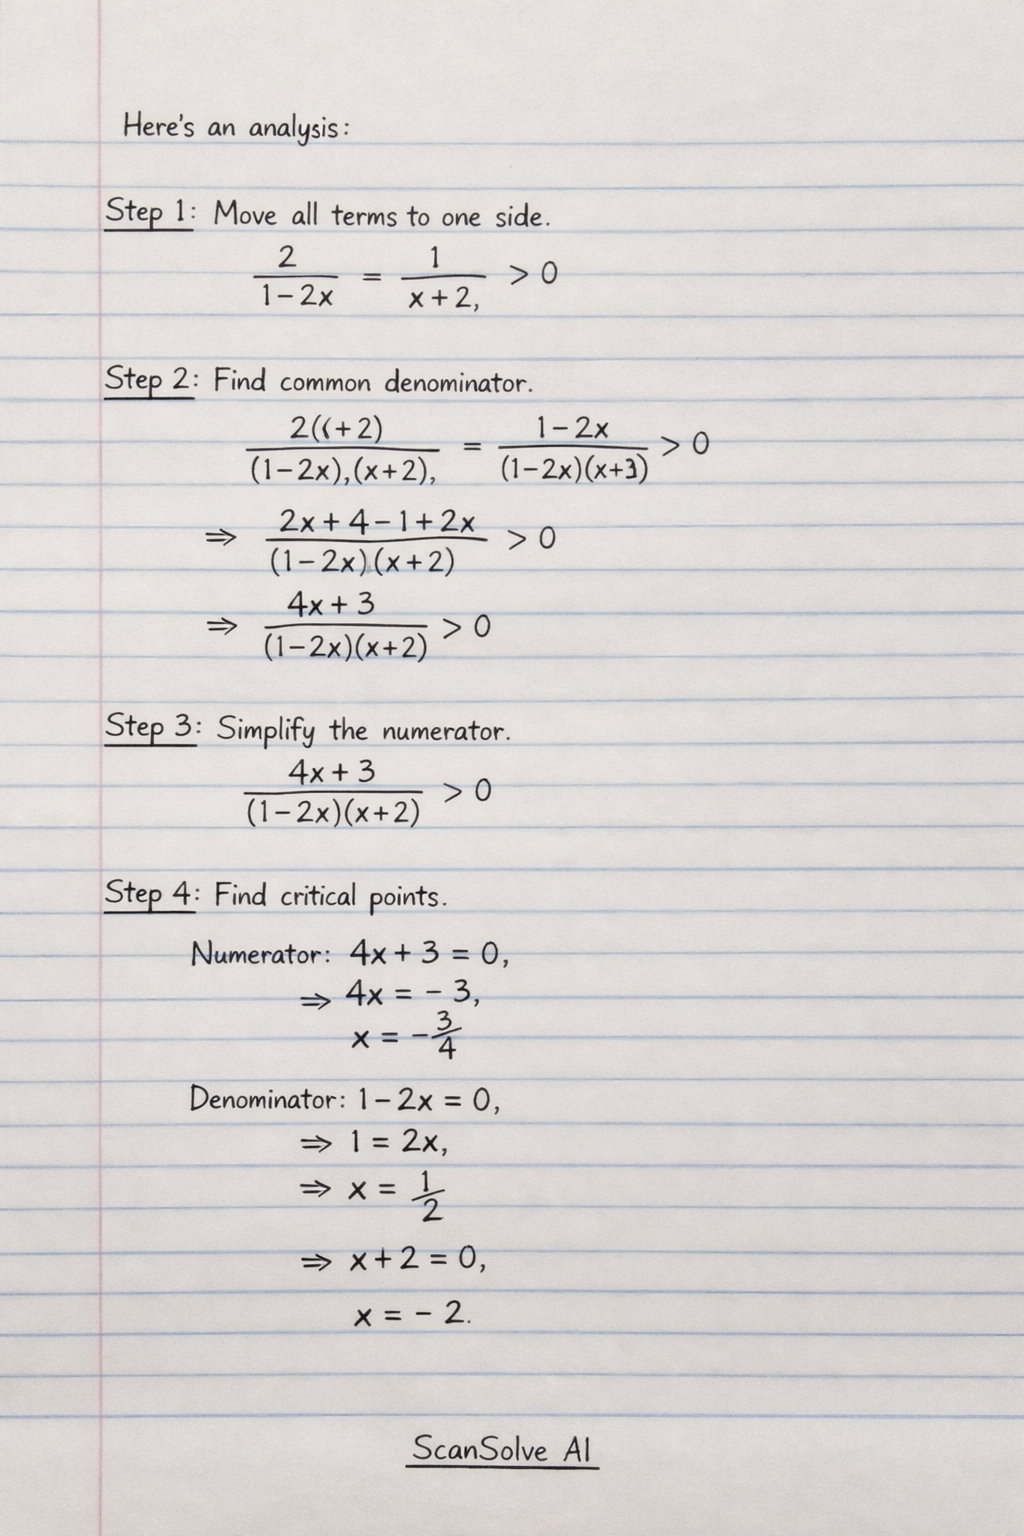 Here's an analysis:
Step 1: Move all terms to one side.
2/(1-2x) = 1/(x+2,) > 0
Step 2: Find common denominator.
2((+2)/((1-2x),(x+2),) = (1-2x)/((1-2x)(x+3)) > 0
⇒ (2x+4-1+2x)/((1-2x)(x+2)) > 0
⇒ (4x+3)/((1-2x)(x+2)) > 0
Step 3: Simplify the numerator.
(4x+3)/((1-2x)(x+2)) > 0
Step 4: Find critical points.
Numerator: 4x+3 = 0,
⇒ 4x = -3,
x = -3/4
Denominator: 1-2x = 0,
⇒ 1 = 2x,
⇒ x = 1/2
⇒ x+2 = 0,
x = -2.
ScanSolve AI